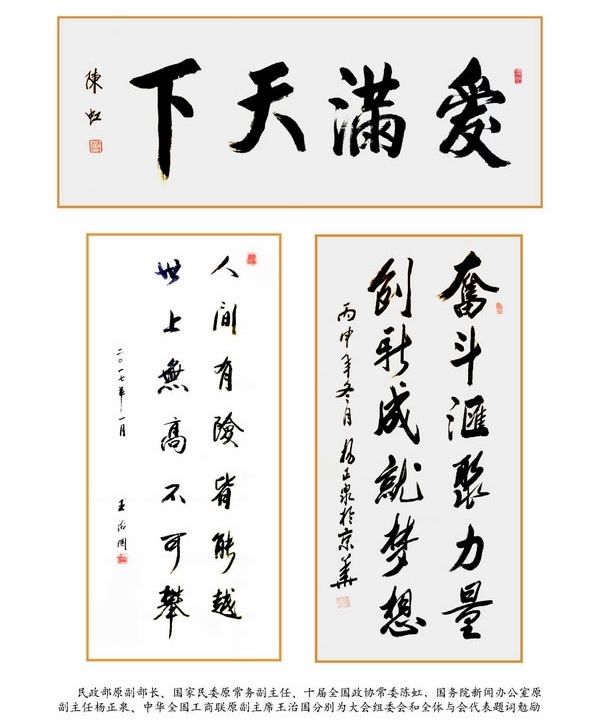 愛滿天下
陳虹
奮斗滙聚力量
創新成就梦想
丙申年冬月 楊正泉於京華
人间有險皆能越
世上無高不可攀
二〇一七年一月
王治國
民政部原副部长、国家民委原常务副主任、十届全国政协常委陈虹，国务院新闻办公室原
副主任杨正泉、中华全国工商联原副主席王治国分别为大会组委会和全体与会代表题词勉励